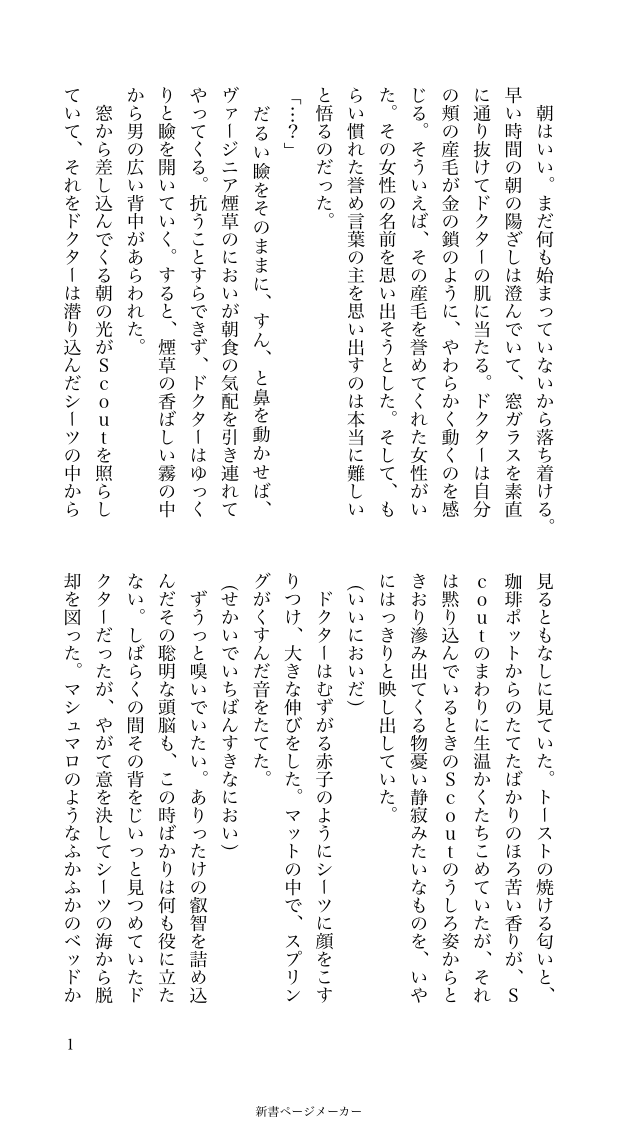 朝はいい。まだ何も始まっていないから落ち着ける。
早い時間の朝の陽ざしは澄んでいて、窓ガラスを素直
に通り抜けてドクターの肌に当たる。ドクターは自分
の頬の産毛が金の鎖のように、やわらかく動くのを感
じる。そういえば、その産毛を誉めてくれた女性がい
た。その女性の名前を思い出そうとした。そして、も
らい慣れた誉め言葉の主を思い出すのは本当に難しい
と悟るのだった。
「…？」
　だるい瞼をそのままに、すん、と鼻を動かせば、
ヴァージニア煙草のにおいが朝食の気配を引き連れて
やってくる。抗うことすらできず、ドクターはゆっく
りと瞼を開いていく。すると、煙草の香ばしい霧の中
から男の広い背中があらわれた。
　窓から差し込んでくる朝の光がＳｃｏｕｔを照らし
ていて、それをドクターは潜り込んだシーツの中から
見るともなしに見ていた。トーストの焼ける匂いと、
珈琲ポットからのたてたばかりのほろ苦い香りが、Ｓ
ｃｏｕｔのまわりに生温かくたちこめていたが、それ
は黙り込んでいるときのＳｃｏｕｔのうしろ姿からと
きおり滲み出てくる物憂い静寂みたいなものを、いや
にはっきりと映し出していた。
（いいにおいだ）
　ドクターはむずがる赤子のようにシーツに顔をこす
りつけ、大きな伸びをした。マットの中で、スプリン
グがくすんだ音をたてた。
（せかいでいちばんすきなにおい）
　ずうっと嗅いでいたい。ありったけの叡智を詰め込
んだその聡明な頭脳も、この時ばかりは何も役に立た
ない。しばらくの間その背をじいっと見つめていたド
クターだったが、やがて意を決してシーツの海から脱
却を図った。マシュマロのようなふかふかのベッドか
1
新書ページメーカー